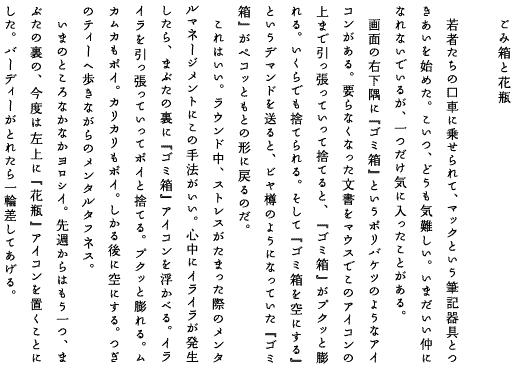 ごみ箱と花瓶
若者たちの口車に乗せられて、マックという筆記器具とつ
きあいを始めた。こいつ、どうも気難しい。いまだいい仲に
なれないでいるが、一つだけ気に入ったことがある。
画面の右下隅に『ゴミ箱』というポリバケツのようなアイ
コンがある。要らなくなった文書をマウスでこのアイコンの
上まで引っ張っていって捨てると、『ゴミ箱』がプクッと膨
れる。いくらでも捨てられる。そして『ゴミ箱を空にする』
というデマンドを送ると、ビヤ樽のようになっていた『ゴミ
箱』がペコッともとの形に戻るのだ。
これはいい。ラウンド中、ストレスがたまった際のメンタ
ルマネージメントにこの手法がいい。心中にイライラが発生
したら、まぶたの裏に『ゴミ箱』アイコンを浮かべる。イラ
イラを引っ張っていってポイと捨てる。プクッと膨れる。ム
カムカもポイ。カリカリもポイ。しかる後に空にする。つぎ
のティーへ歩きながらのメンタルタフネス。
いまのところなかなかヨロシイ。先週からはもう一つ、ま
ぶたの裏の、今度は左上に『花瓶』アイコンを置くことに
した。バーディーがとれたら一輪差してあげる。